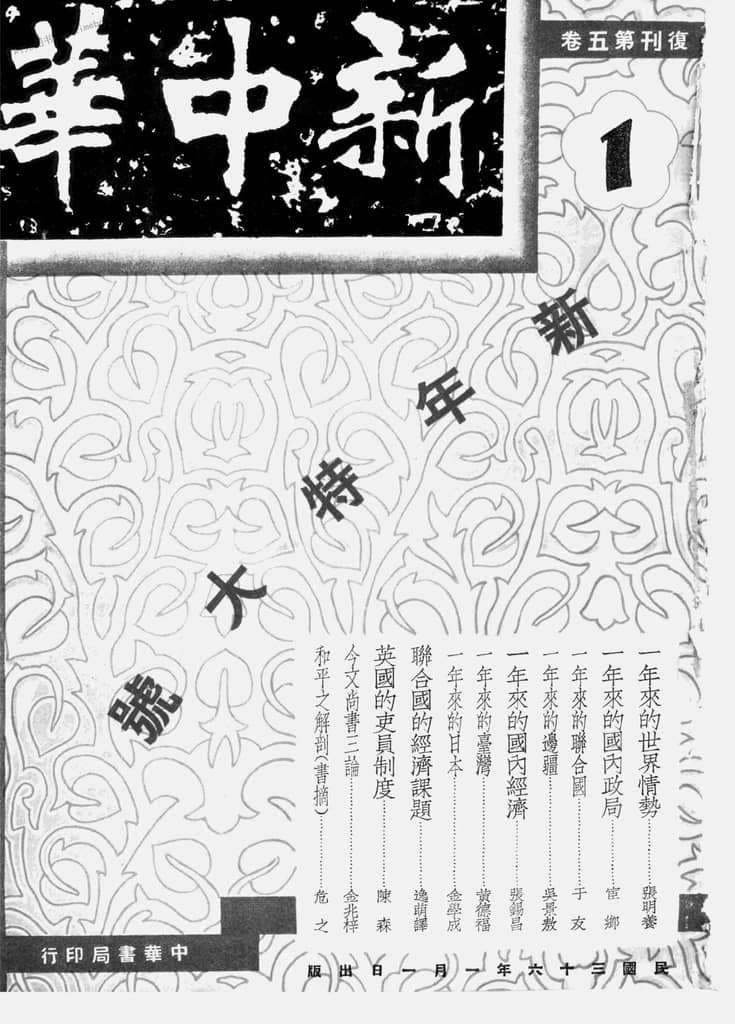 復刊第五卷
1
新中華
新年特大號
一年來的世界情勢………張明養
一年來的國內政局………宦鄉
一年來的聯合國………于友
一年來的邊疆………吳景敖
一年來的國內經濟………張錫昌
一年來的臺灣………黃德福
一年來的日本………金學成
聯合國的經濟課題………逸萌譯
英國的吏員制度………陳森
今文尚書三論………金兆梓
和平之解剖(書摘)………危之
中華書局印行
民國三十六年一月一日出版